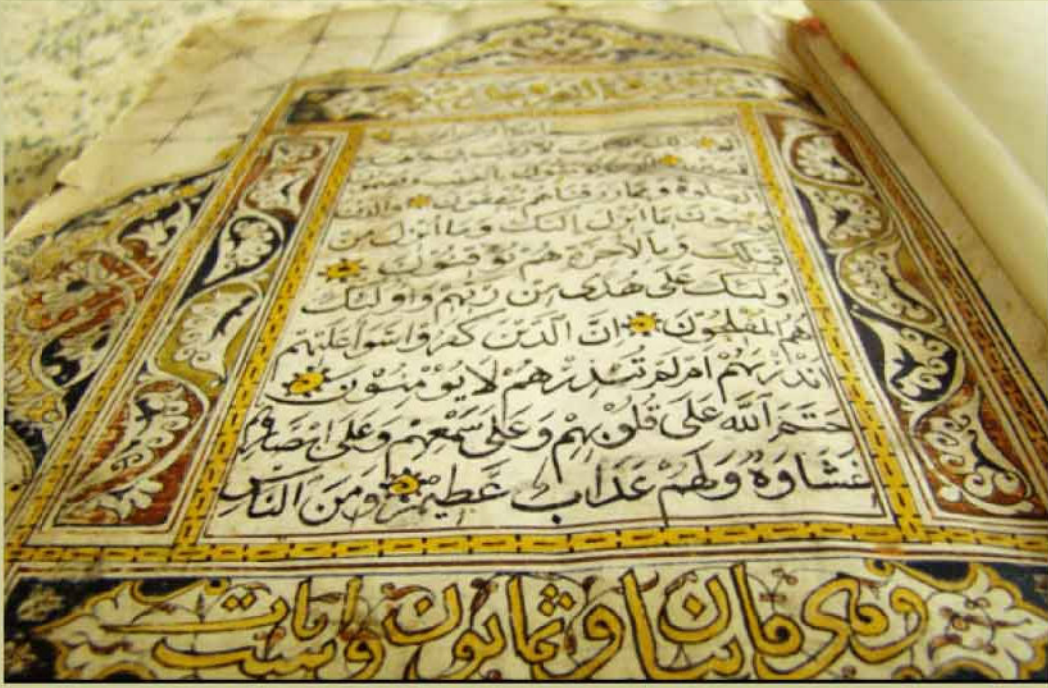 الم ذلك الكتاب لا ريب فيه
يؤمنون بالغيب ويقيمون
الصلوة ومما رزقناهم ينفقون والذين
يؤمنون بما انزل اليك وما انزل من
قبلك وبالاخرة هم يوقنون
اولئك على هدى من ربهم واولئك
هم المفلحون ان الذين كفروا سواء عليهم
ءانذرتهم ام لم تنذرهم لا يؤمنون
ختم الله على قلوبهم وعلى سمعهم وعلى ابصارهم
غشاوة ولهم عذاب عظيم ومن الناس
وهي مائتان وثمانون وست ايات